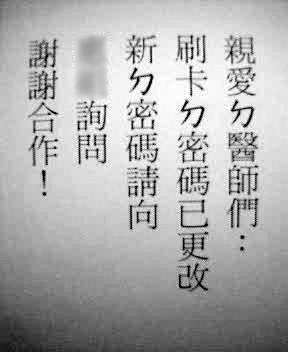 親愛ㄉ醫師們：
刷卡ㄉ密碼已更改
新ㄉ密碼請向
詢問
謝謝合作！